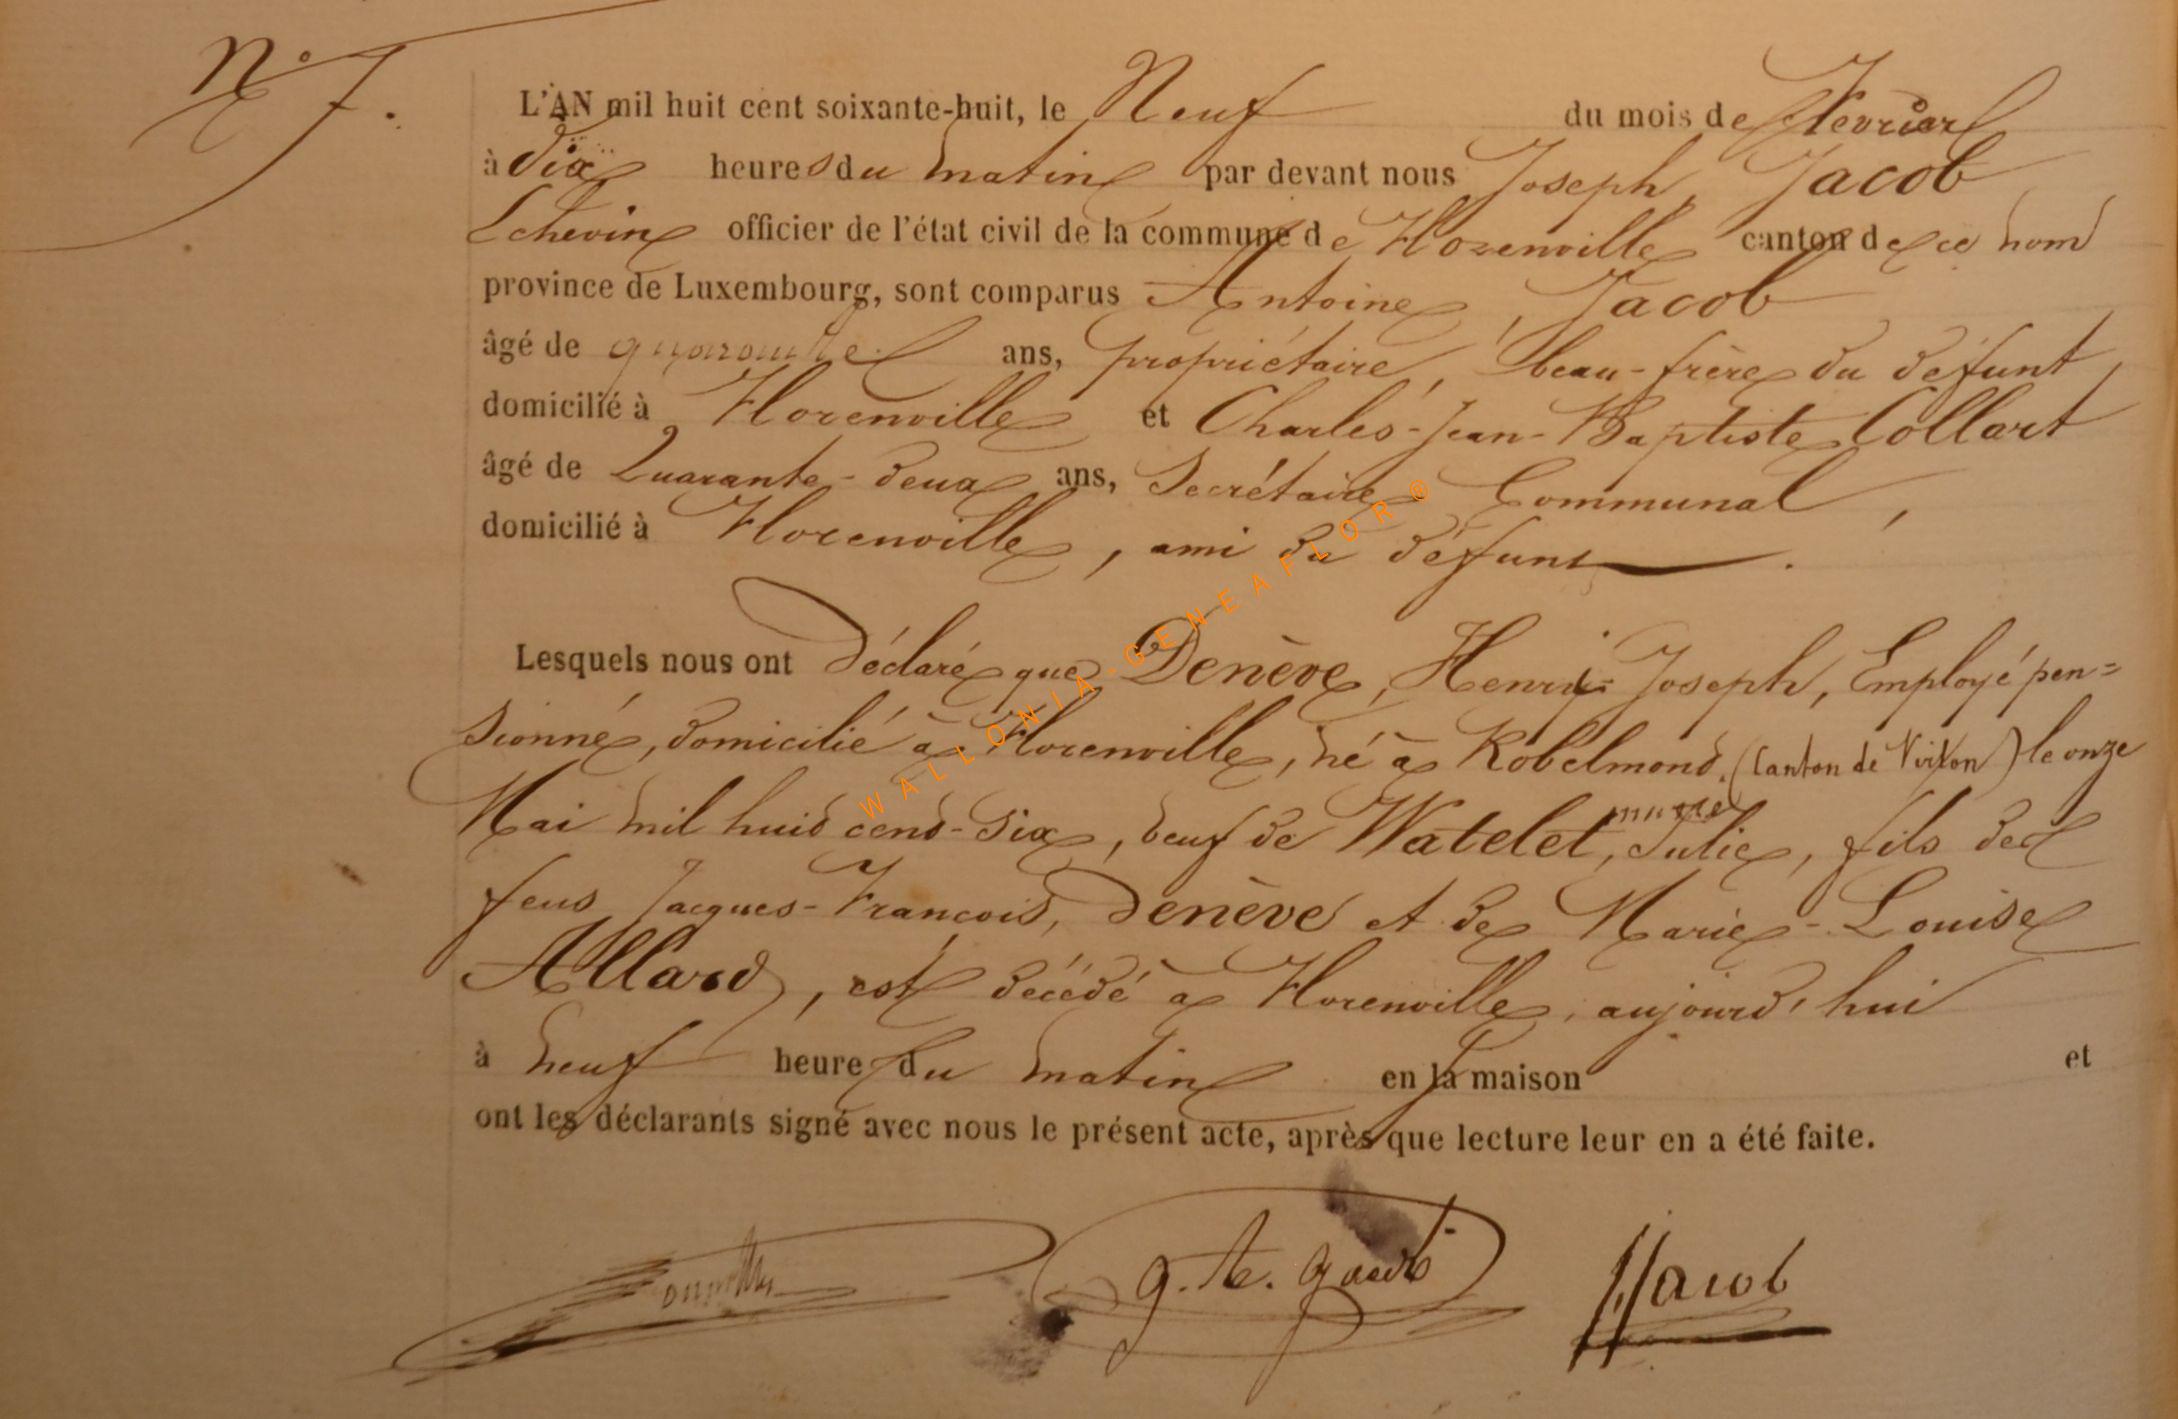 N° 7.
L'AN mil huit cent soixante-huit, le Neuf du mois de Février
à dix heures du matin par devant nous Joseph Jacob
Echevin officier de l'état civil de la commune de Florenville canton de ce nom
province de Luxembourg, sont comparus Antoine Jacob
âgé de quarante ans, propriétaire, beau-frère du défunt,
domicilié à Florenville et Charles-Jean-Baptiste Collart
âgé de Quarante-deux ans, Secrétaire Communal,
domicilié à Florenville, ami du défunt.
Lesquels nous ont déclaré que Denève, Henri-Joseph, Employé pen=
sionné, domicilié à Florenville, né à Robelmont (Canton de Virton) le onze
Mai mil huit cent-six, veuf de Watelet, Marie Julie, fils de
feus Jacques-François, Denève et de Marie-Louise
Allard, est décédé à Florenville, aujourd'hui
à neuf heure du matin en sa maison et
ont les déclarants signé avec nous le présent acte, après que lecture leur en a été faite.
Jacob
WALLONIA-GENEAFLOR®